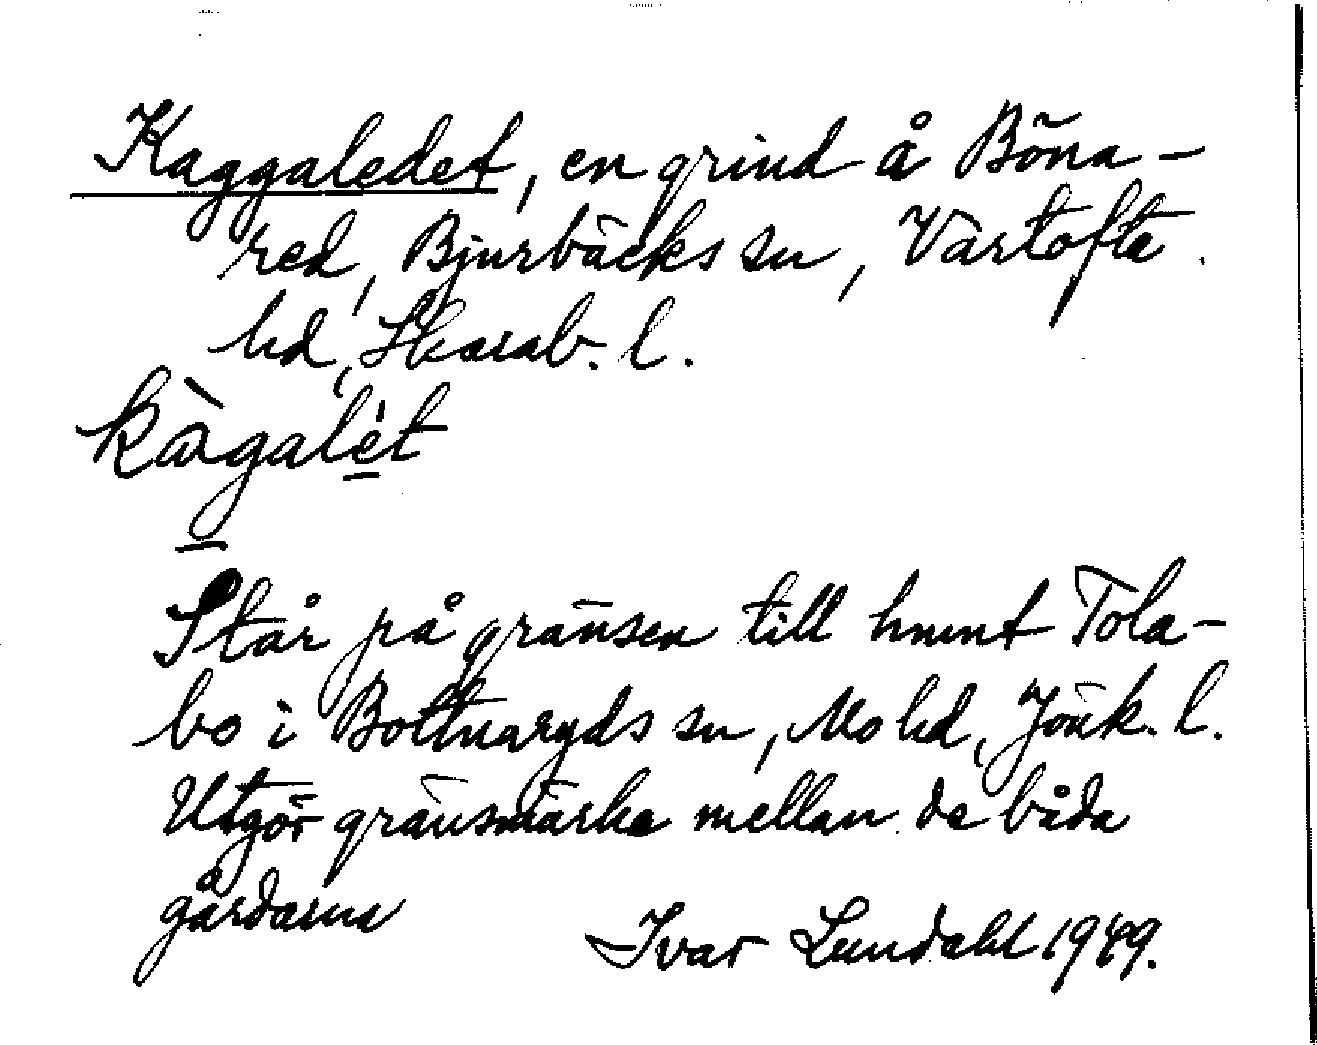 Kaggaledet, en grind å Böna-
red, Bjurbäcks sn, Vartofta
hd, Skarab. l.
kàgalét
Står på gränsen till hmnt Tola-
bo i Bottnaryds sn, Mo hd, Jönk. l.
Utgör gränsmärke mellan de båda
gårdarna
Ivar Lundahl 1949.